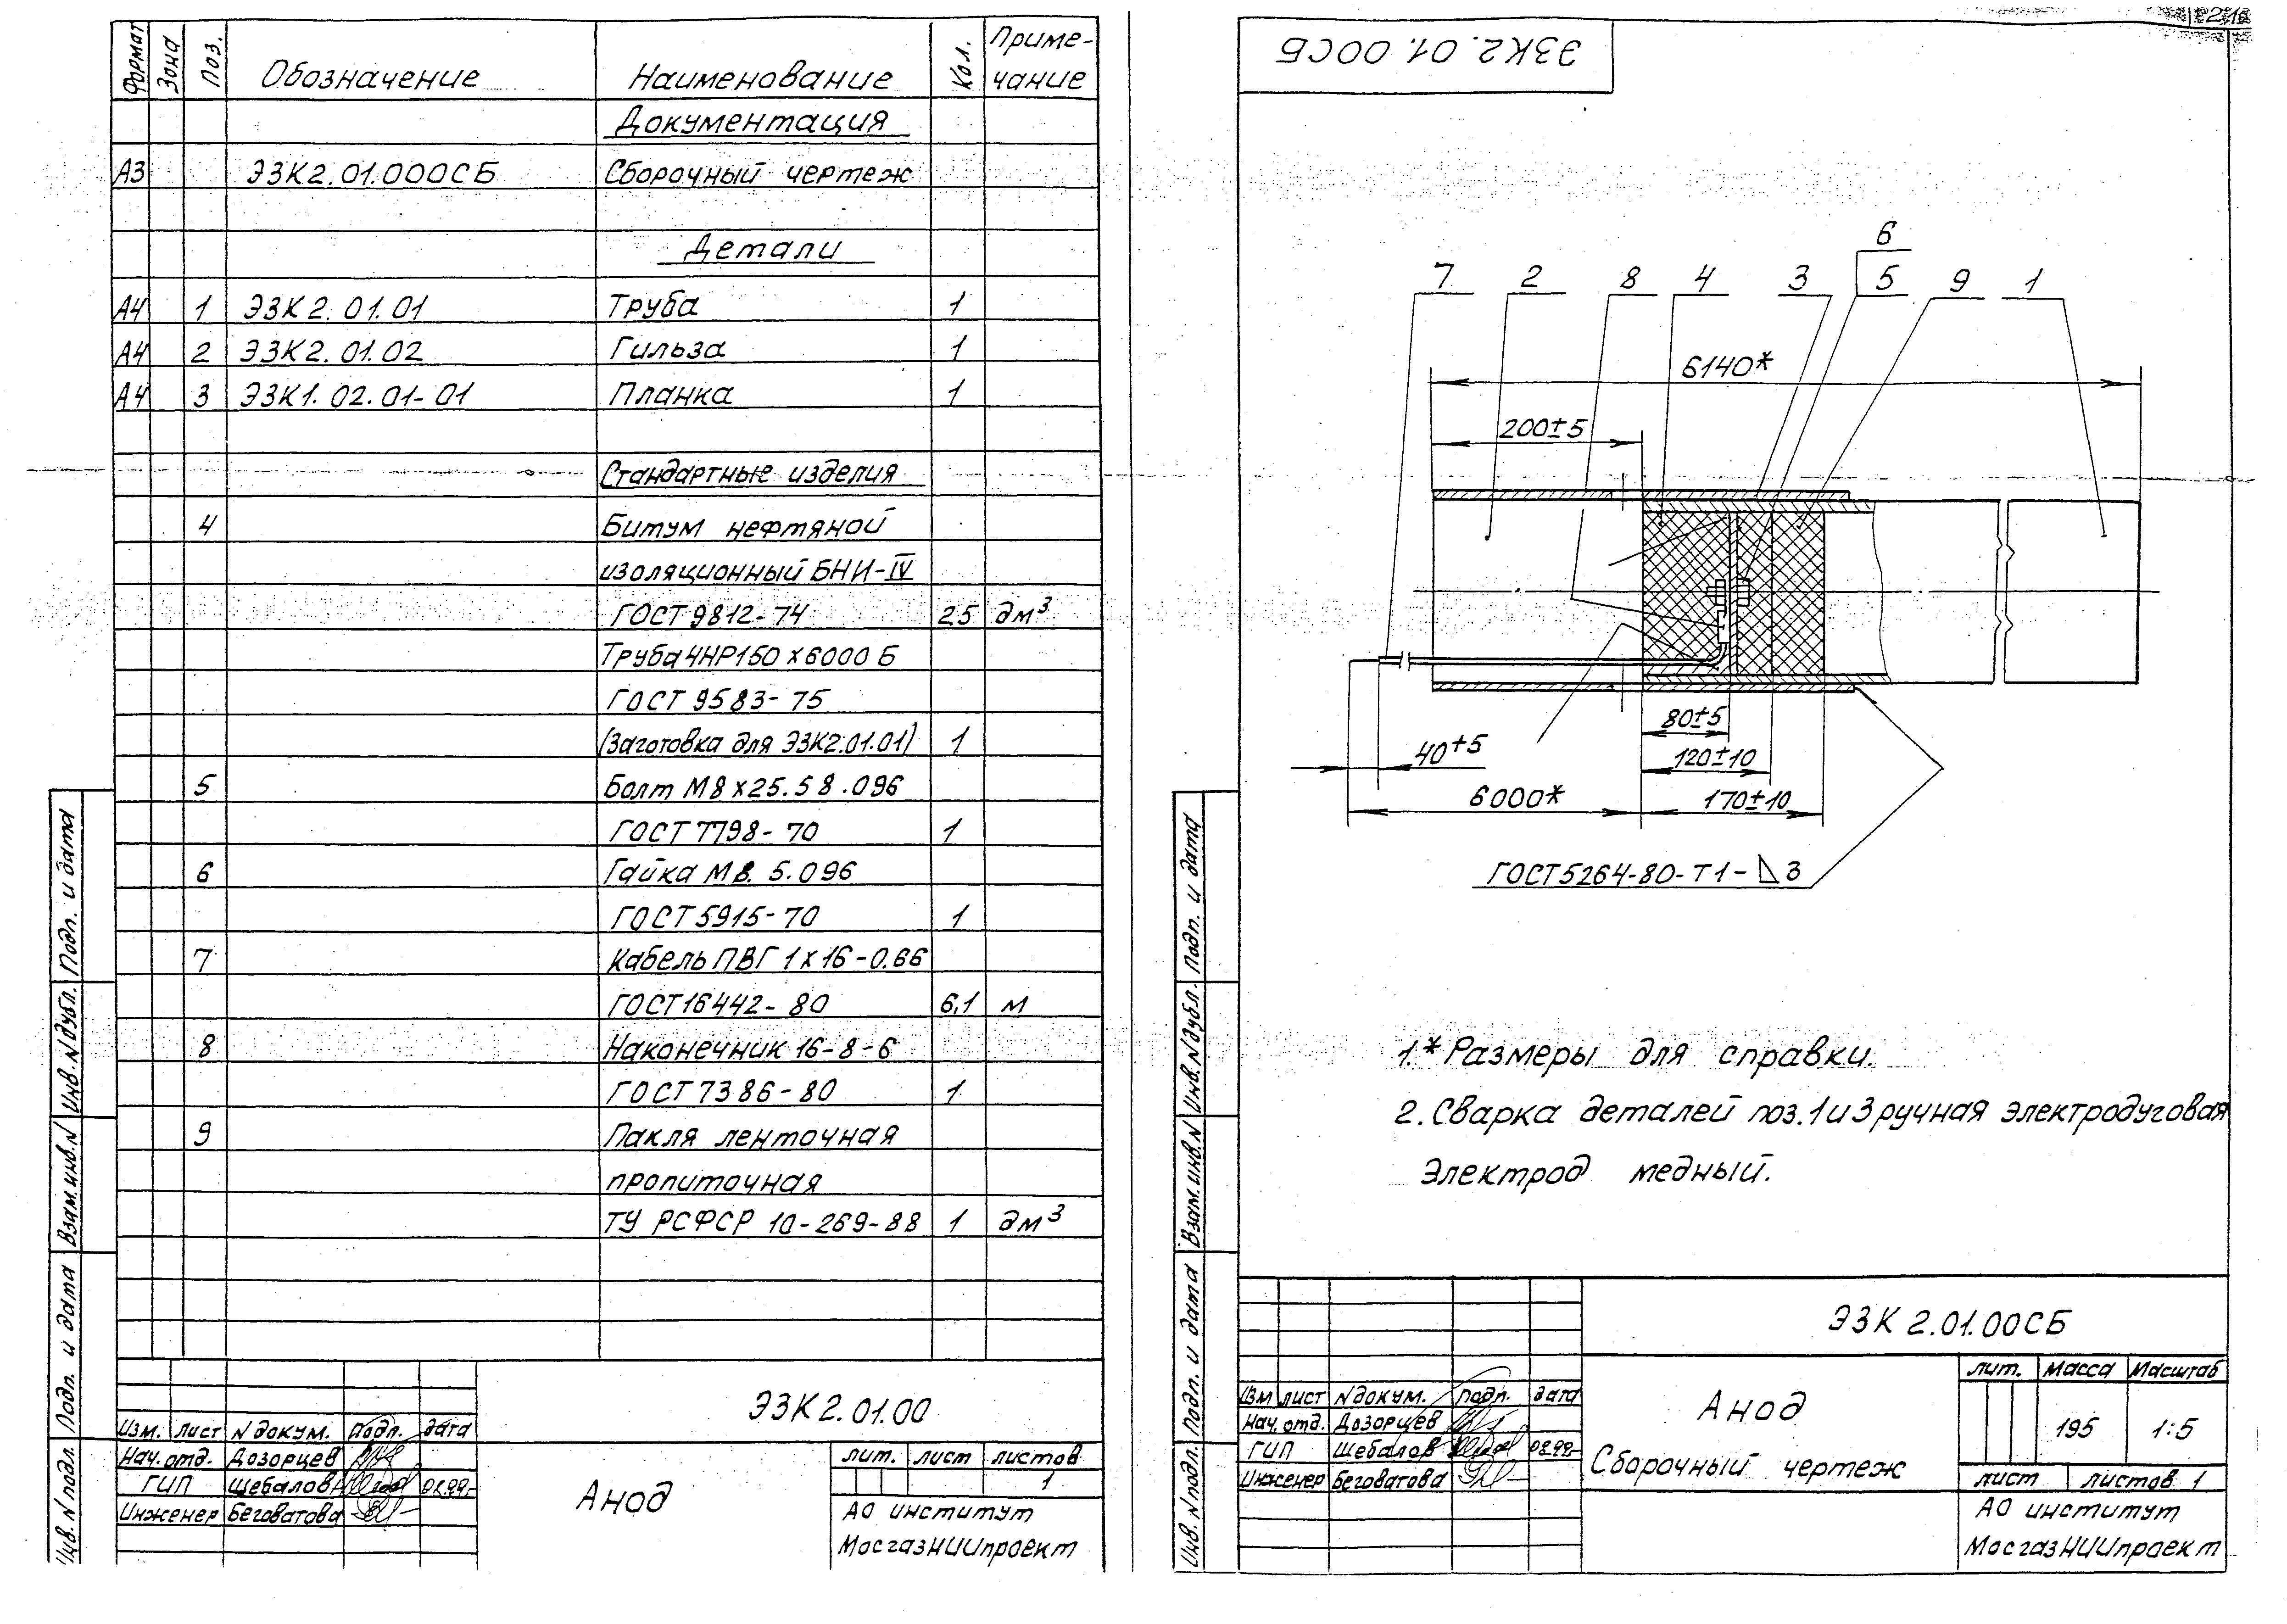 Формат
Зона
Поз.
Обозначение
Наименование
Кол.
Приме-
чание
Документация
А3 ЭЗК2.01.000СБ Сборочный чертеж
Детали
А4 1 ЭЗК2.01.01 Труба 1
А4 2 ЭЗК2.01.02 Гильза 1
А4 3 ЭЗК1.02.01-01 Планка 1
Стандартные изделия
4 Битум нефтяной
изоляционный БНИ-IV
ГОСТ 9812-74 25 дм³
Труба ЧНР150х6000 Б
ГОСТ 9583-75
(Заготовка для ЭЗК2.01.01) 1
5 Болт М8х25.58.096
ГОСТ 7798-70 1
6 Гайка М8.5.096
ГОСТ 5915-70 1
7 Кабель ПВГ 1х16-0.66
ГОСТ 16442-80 6,1 м
8 Наконечник 16-8-6
ГОСТ 7386-80 1
9 Пакля ленточная
пропиточная
ТУ РСФСР 10-269-88 1 дм³
Подп. и дата
Инв. N дубл.
Взам. инв. N
Подп. и дата
Инв. N подл.
ЭЗК2.01.00
Изм. лист N докум. Подп. дата
Нач. отд. Дозорцев
ГИП Шебалов
Инженер Беговатова
Анод
лит. лист листов
1
АО институт
МосгазНИИпроект
ЭЗК2.01.00СБ
6
7 2 8 4 3 5 9 1
6140*
200±5
80±5
40±5
120±10
6000*
170±10
ГОСТ 5264-80-Т1-◺3
1.* Размеры для справки.
2. Сварка деталей поз.1 и 3 ручная электродуговая
Электрод медный.
Подп. и дата
Инв. N дубл.
Взам. инв. N
Подп. и дата
Инв. N подл.
ЭЗК 2.01.00СБ
Изм лист N докум. подп. дата
Нач. отд. Дозорцев
ГИП Шебалов
Инженер Беговатова
Анод
Сборочный чертеж
лит. Масса Масштаб
195 1:5
лист листов 1
АО институт
МосгазНИИпроект